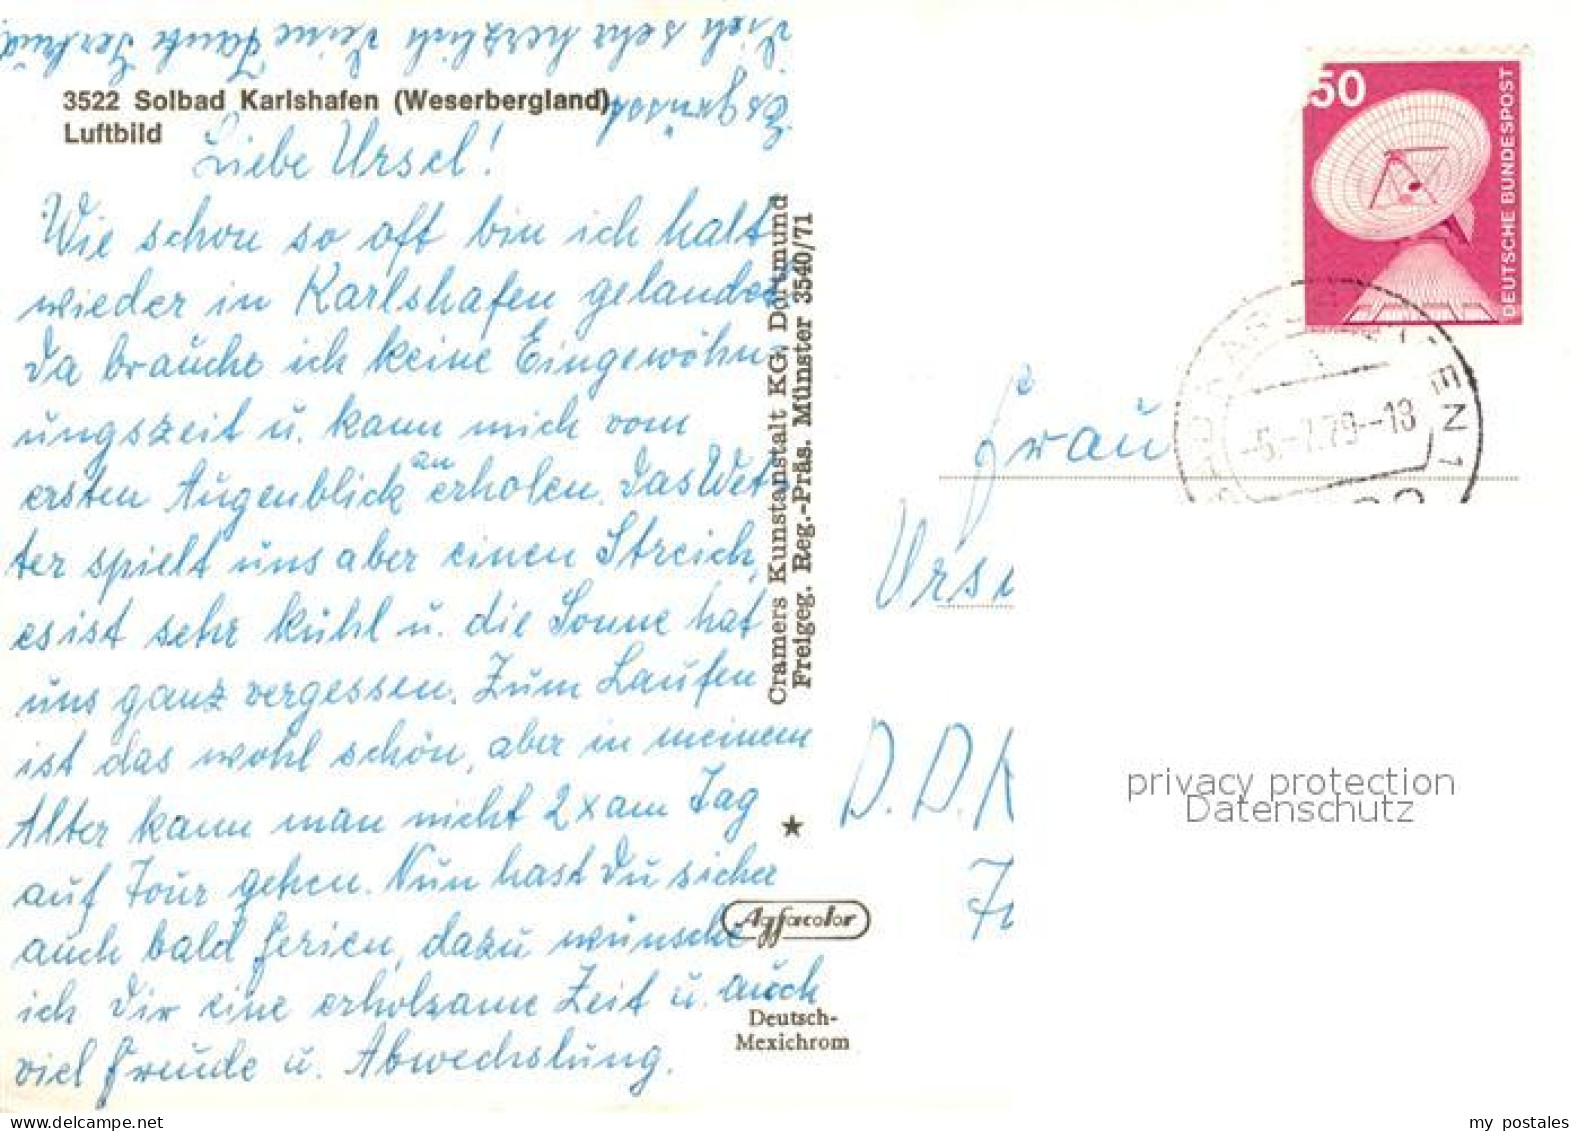 3522 Solbad Karlshafen (Weserbergland)
Luftbild
Liebe Ursel!
Wie schon so oft bin ich halt
wieder in Karlshafen gelandet
Da brauche ich keine Eingewöhn-
ungszeit u. kann mich vom
ersten Augenblick an erholen. Das Wet-
ter spielt uns aber einen Streich,
es ist sehr kühl u. die Sonne hat
uns ganz vergessen. Zum Laufen
ist das wohl schön, aber in meinem
Alter kann man nicht 2x am Tag
auf Tour gehen. Nun hast Du sicher
auch bald Ferien, dazu wünsche
ich Dir eine erholsame Zeit u. auch
viel Freude u. Abwechslung.
Es grüsst
Dich sehr herzlich Deine Tante
Cramers Kunstanstalt KG, Dortmund
Freigeg. Reg.-Präs. Münster 3540/71
Agfacolor
Deutsch-
Mexichrom
50
DEUTSCHE BUNDESPOST
-5.-7.79--13
Frau
Urs
D.D.
privacy protection
Datenschutz
my postales